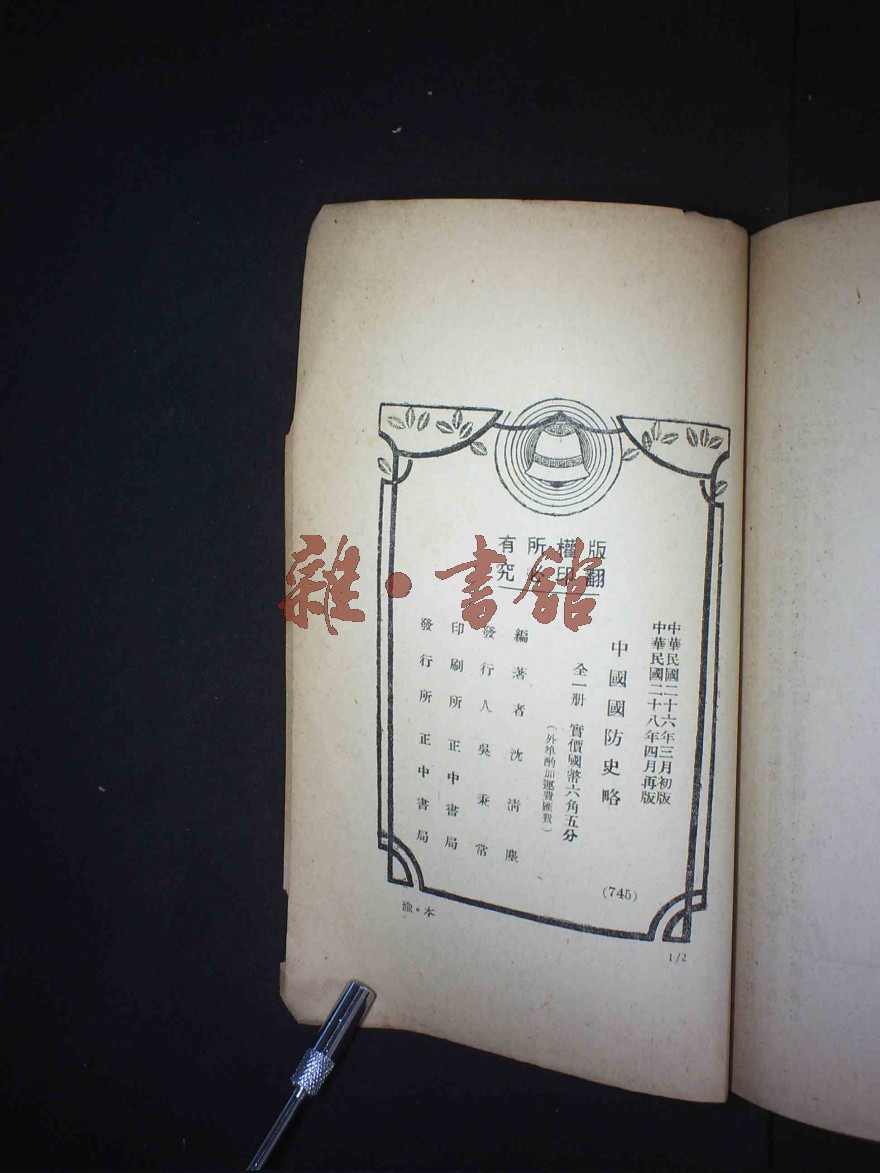 版權所有
翻印必究
中華民國二十六年三月初版
中華民國二十八年四月再版
中國國防史略
(745)
全一册 實價國幣六角五分
（外埠酌加運費匯費）
編著者 沈清塵
發行人 吳秉常
印刷所 正中書局
發行所 正中書局
渝·本
1/2
雜·書館